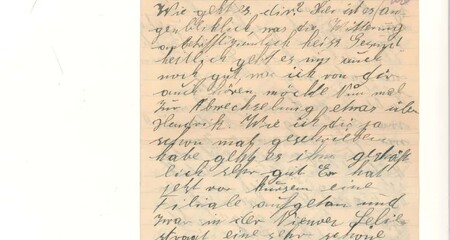 Wie geht es dir? Hier ist es au-
genblicklich, was die Witterung
anbetrifft, zienlich heiss. Gesund-
heitlich geht es uns auch
noch gut, was ich von dir
auch hören möchte. Nun mal
zur Abwechselung etwas über
Hendrik. Wie ich dir ja
schon mal geschrieben
habe geht es ihm geschäft-
lich sehr gut. Er hat
jetzt vor kurzem eine
Filiale aufgetan und
zwar in der Nieuwe
straat eine sehr schöne